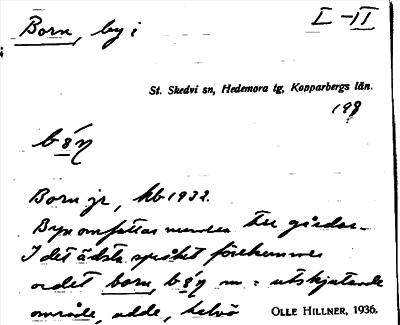 Born, by i
I-II
St. Skedvi sn, Hedemora tg, Kopparbergs län.
198
Born jr, kb 1932.
Byn omfattas numera tre gårdar.
I det äldsta språket förekommer
ordet born, m = utskjutande
område, udde, halvö
OLLE HILLNER, 1936.